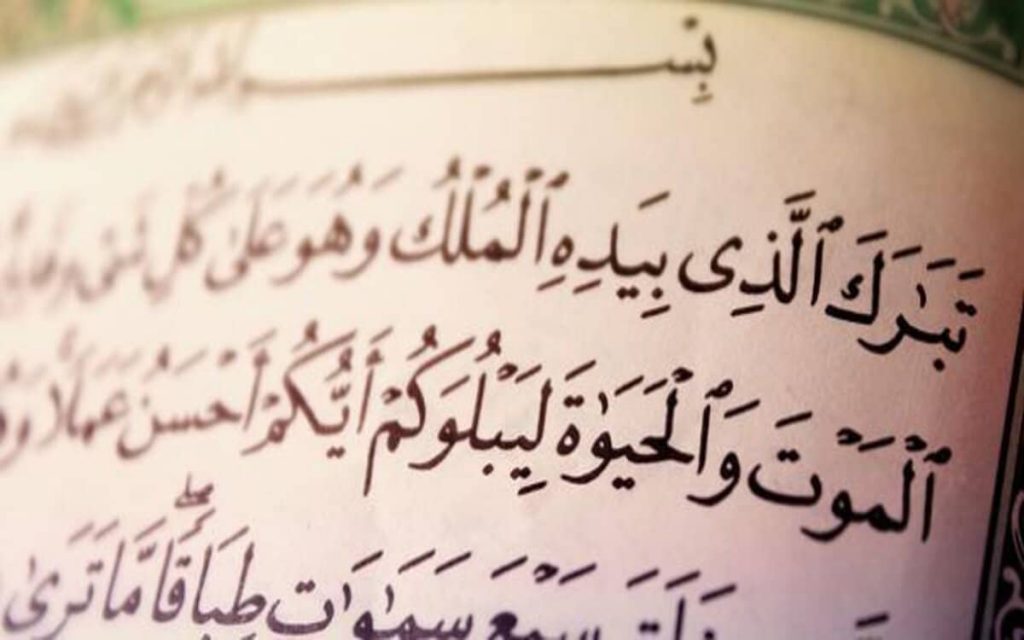 بِسْـــــــمِ
تَبَٰرَكَ ٱلَّذِى بِيَدِهِ ٱلْمُلْكُ وَهُوَ عَلَىٰ كُلِّ شَىْءٍ
ٱلْمَوْتَ وَٱلْحَيَوٰةَ لِيَبْلُوَكُمْ أَيُّكُمْ أَحْسَنُ عَمَلًا
خَلَقَ سَبْعَ سَمَٰوَٰتٍ طِبَاقًا ۖ مَّا تَرَىٰ